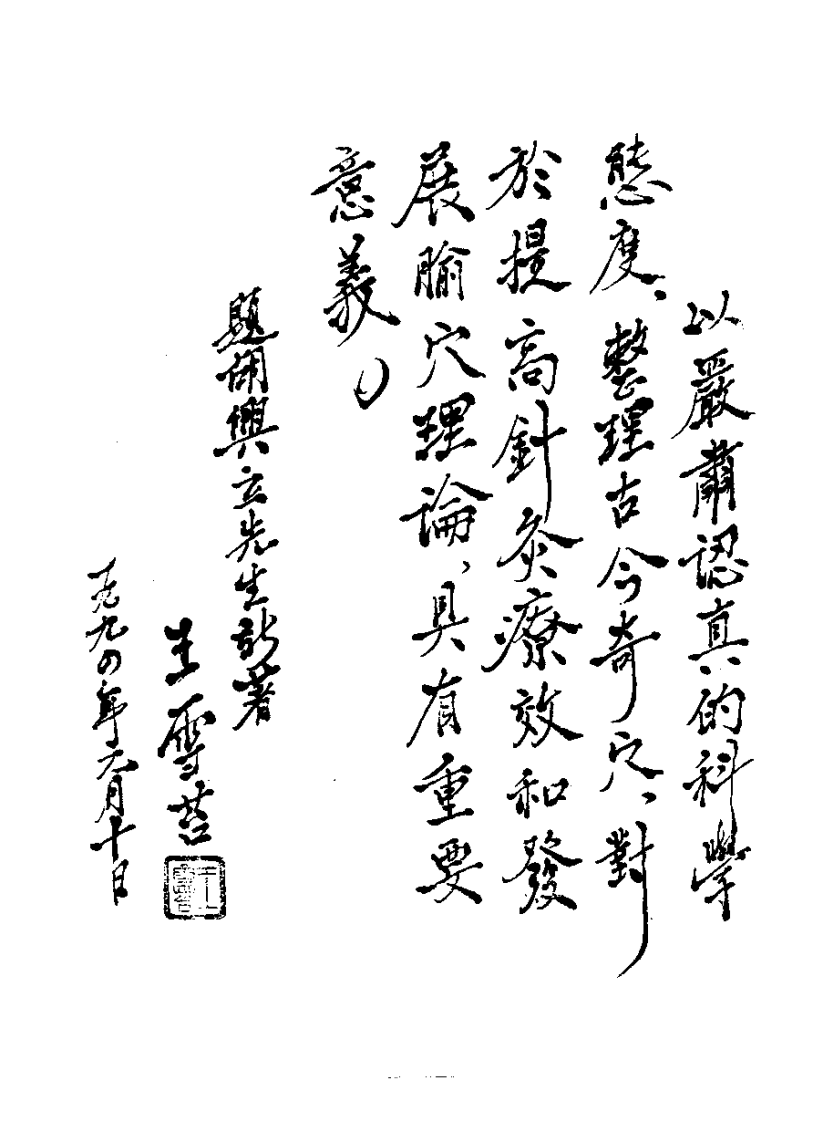 以嚴肅認真的科學
態度、整理古今奇穴、對
於提高針灸療效和發
展腧穴理論、具有重要
意義。
題佣興立先生新著
王雪苔
一九九四年元月十日